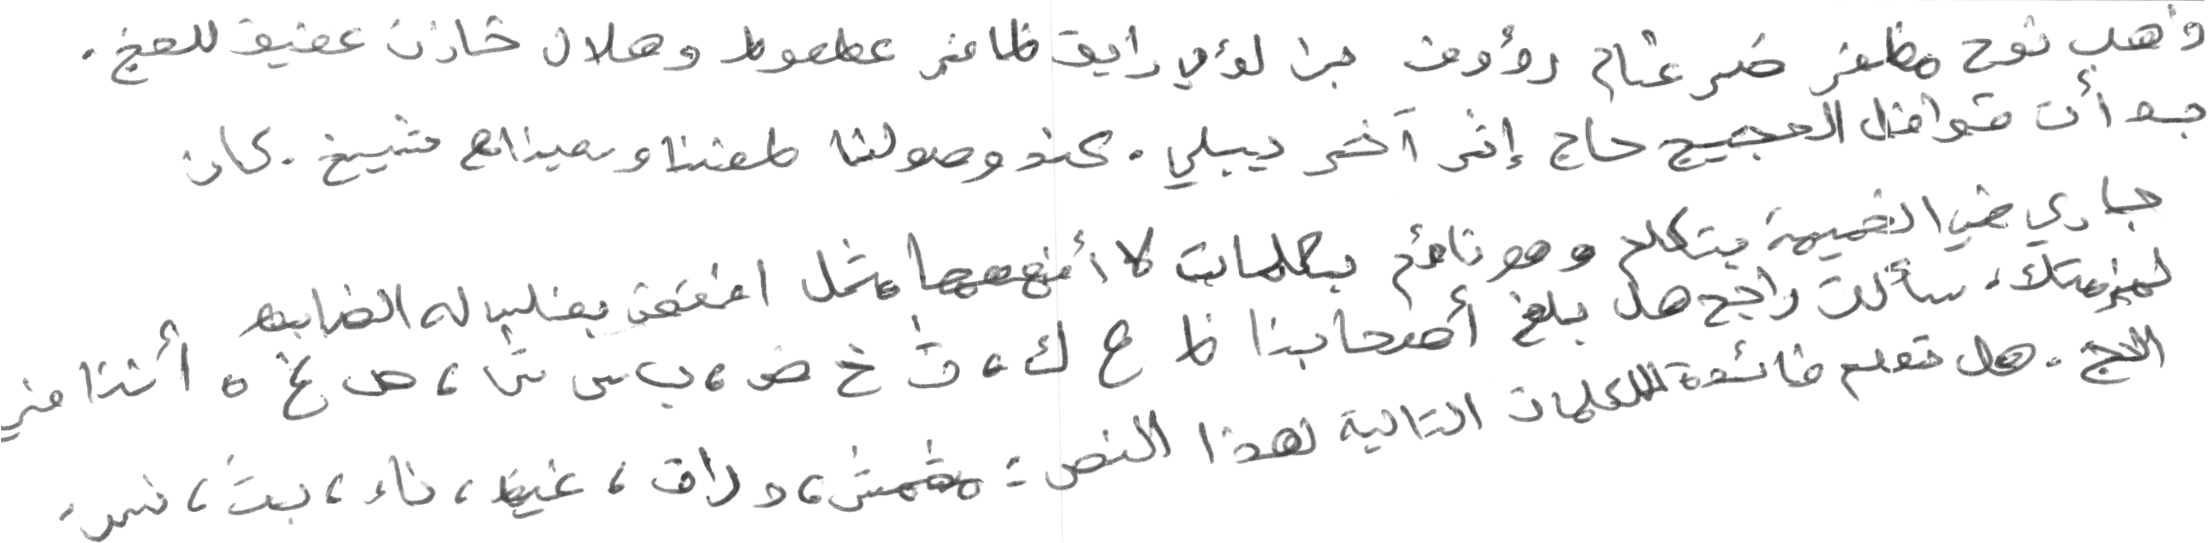 ذهب نوح مظفر ضرغام رؤوف بن لؤي رايق ظافر عطعوط وهلال خازن عفيف للحج.
بدأت قوافل الحجيج حاج إثر آخر يبلي. عند وصولنا طفنا وسعينا مع شيخ. كان
جاري في الخيمة يتكلم وهو نائم بكلمات لا أفهمها مثل اخفض بغلب له الضابط
لهزمتك. سألت راجح هل بلغ أصحابنا ظ ع ك، ث خ ض، ب س ش، ص غ ه أننا في
الحج. هل تعلم فائدة للكلمات التالية لهذا النص: مشمش، دراق، غيظ، ناء، بث، نسر.